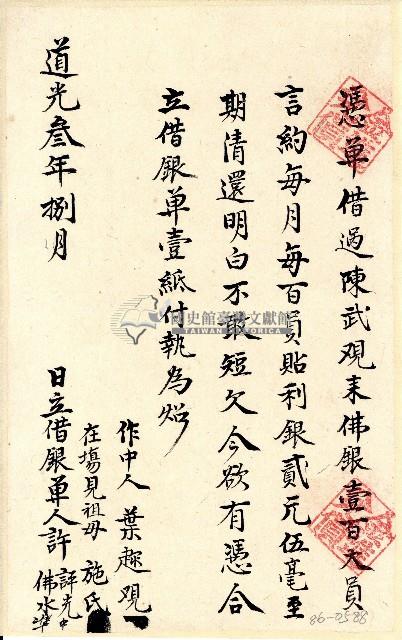 憑单借過陳武观来佛銀壹百大員
言約每月每百員貼利銀貳元伍毫至
期清還明白不敢短欠今欲有憑合
立借銀单壹紙付執為炤
作中人 葉趣观
在塲見祖母 施氏
道光叁年捌月 日立借銀单人許
佛水
國史館臺灣文獻館
TAIWAN HISTORICA
86-0588